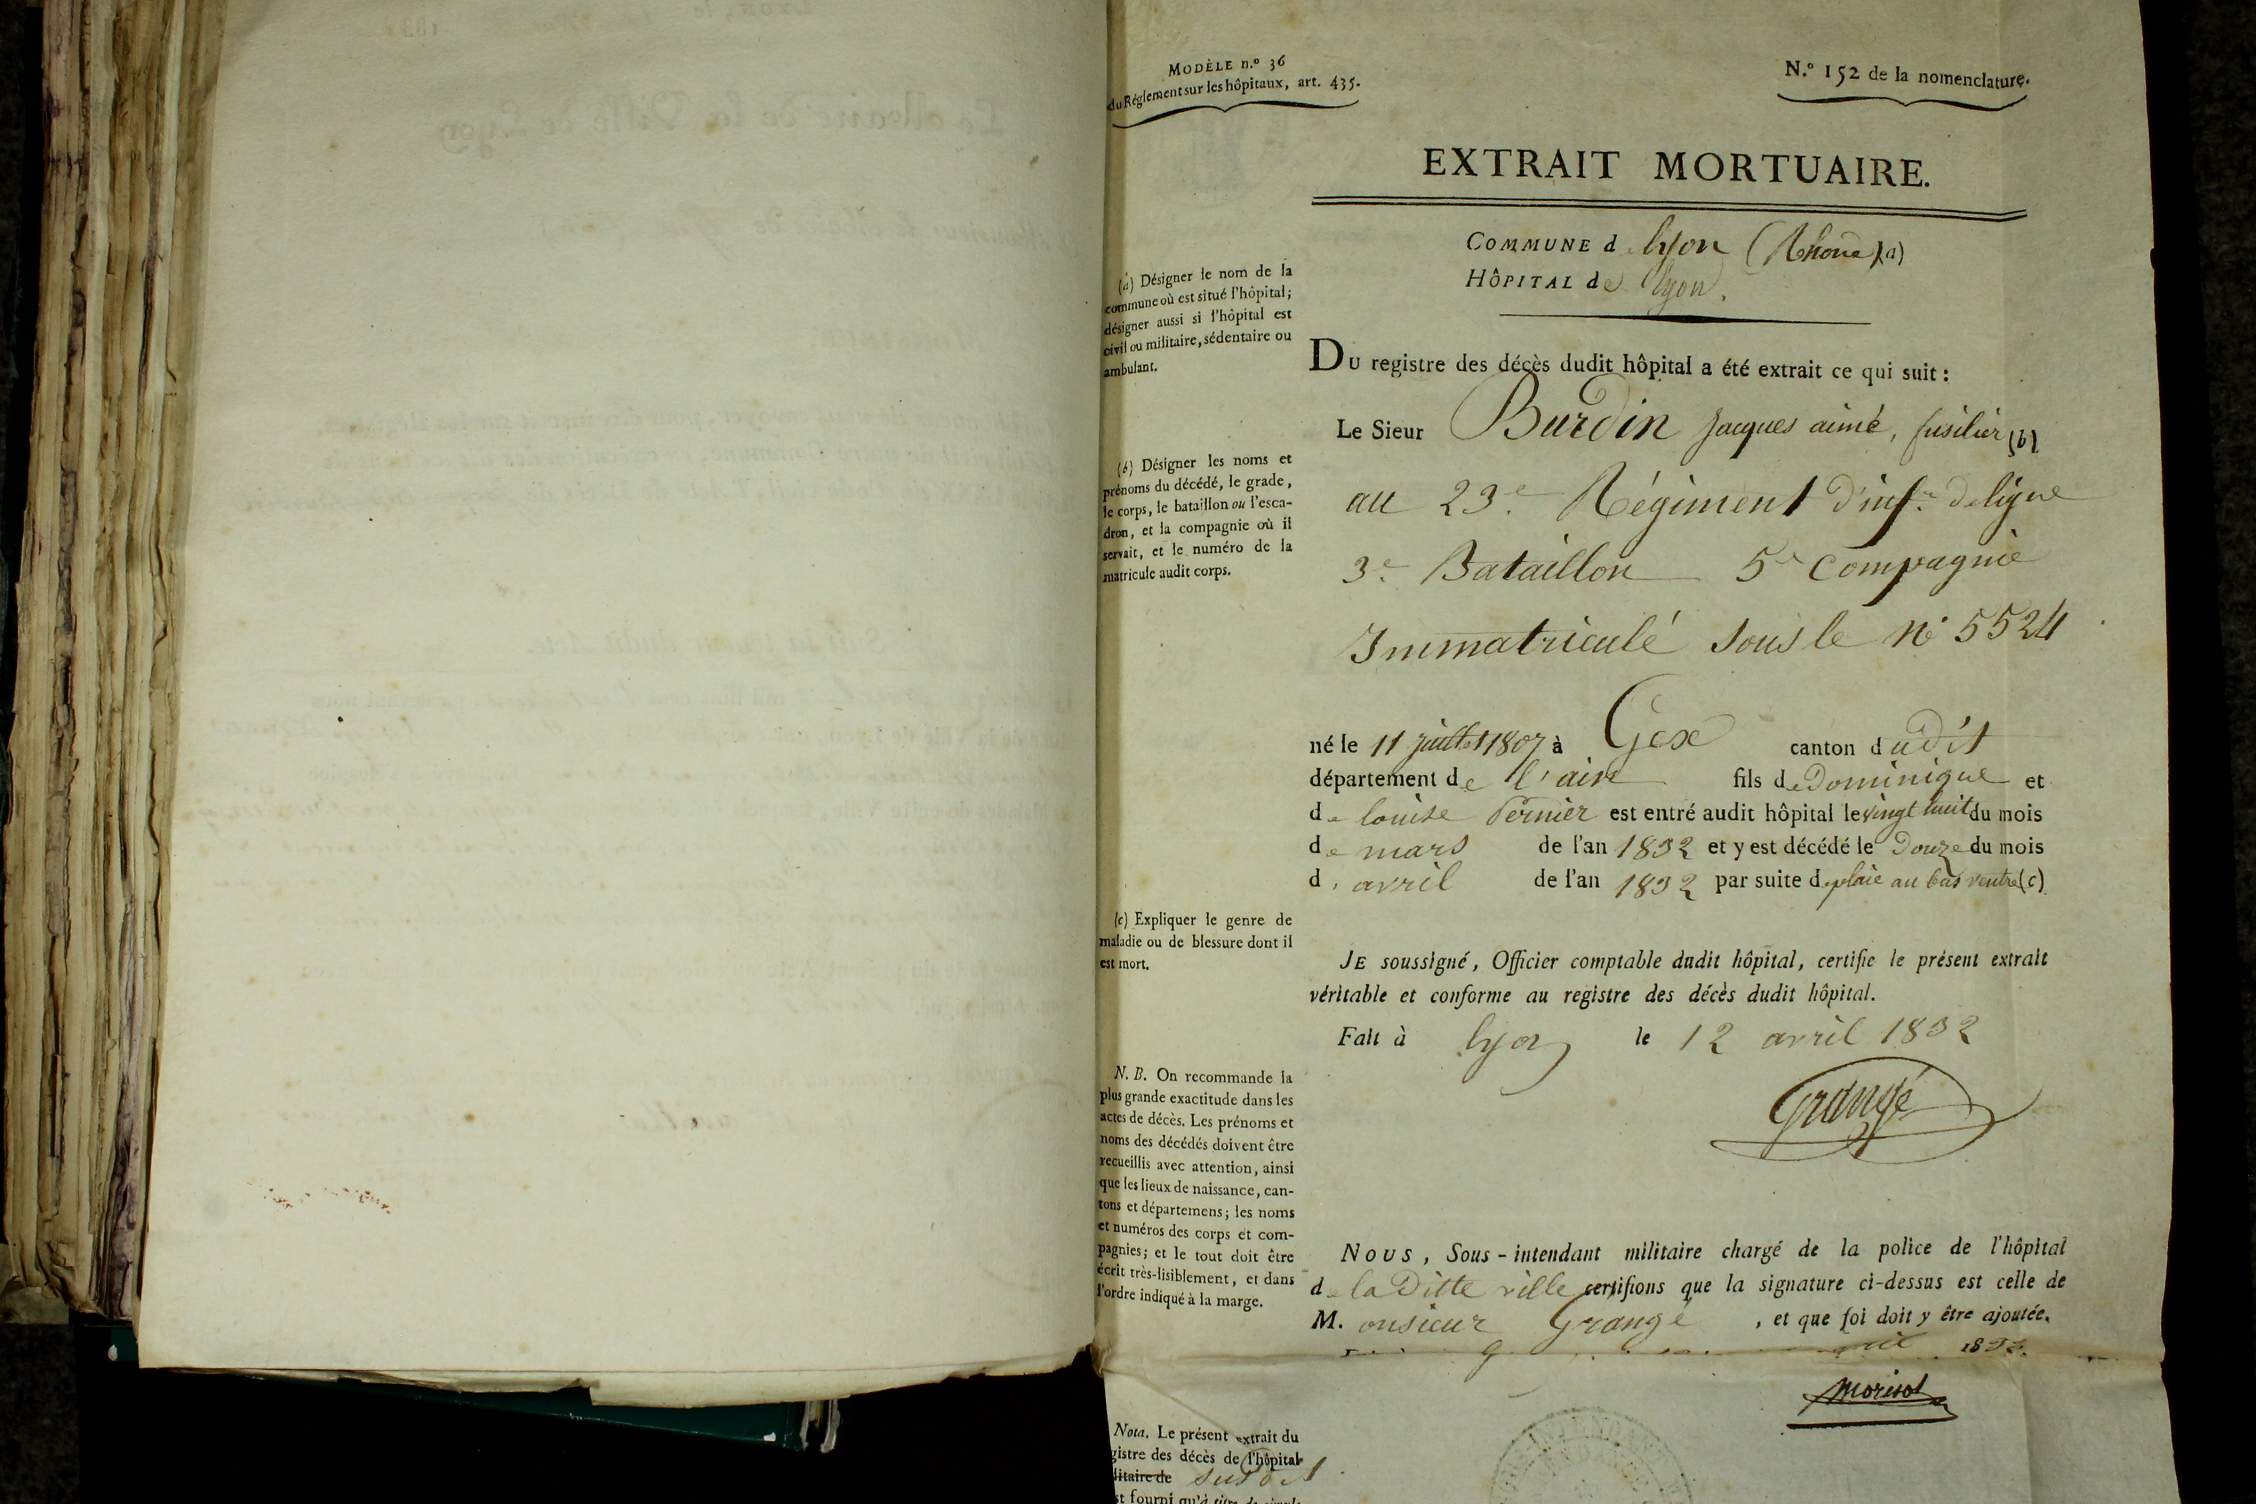 MODÈLE n.° 36
du Réglement sur les hôpitaux, art. 435.
N.° 152 de la nomenclature.
EXTRAIT MORTUAIRE.
COMMUNE de Lyon (Rhone) (a)
HÔPITAL de Lyon.
(a) Désigner le nom de la
commune où est situé l'hôpital;
désigner aussi si l'hôpital est
civil ou militaire, sédentaire ou
ambulant.
DU registre des décès dudit hôpital a été extrait ce qui suit :
Le Sieur Burdin Jacques aimé, fusilier (b)
au 23.e Régiment d'inf.ie de ligne
3.e Bataillon 5.e Compagnie
Immatriculé sous le n° 5524
(b) Désigner les noms et
prénoms du décédé, le grade,
le corps, le bataillon ou l'esca-
dron, et la compagnie où il
servait, et le numéro de la
matricule audit corps.
né le 11 juillet 1807 à Gex canton dudit
département de l'ain fils de Dominique et
de louise Pernier est entré audit hôpital le vingt huit du mois
de mars de l'an 1832 et y est décédé le Douze du mois
d'avril de l'an 1832 par suite de plaie au bas ventre (c)
(c) Expliquer le genre de
maladie ou de blessure dont il
est mort.
JE soussigné, Officier comptable dudit hôpital, certifie le présent extrait
véritable et conforme au registre des décès dudit hôpital.
Fait à Lyon le 12 avril 1832
Grangé
N. B. On recommande la
plus grande exactitude dans les
actes de décès. Les prénoms et
noms des décédés doivent être
recueillis avec attention, ainsi
que les lieux de naissance, can-
tons et départemens; les noms
et numéros des corps et com-
pagnies; et le tout doit être
écrit très-lisiblement, et dans
l'ordre indiqué à la marge.
NOUS, Sous-intendant militaire chargé de la police de l'hôpital
de la Ditte ville certifions que la signature ci-dessus est celle de
M. onsieur Grangé, et que foi doit y être ajoutée.
1832.
Morisot
Nota. Le présent extrait du
gistre des décès de l'hôpital
litaire de susdit
st fourni qu'à titre de simple